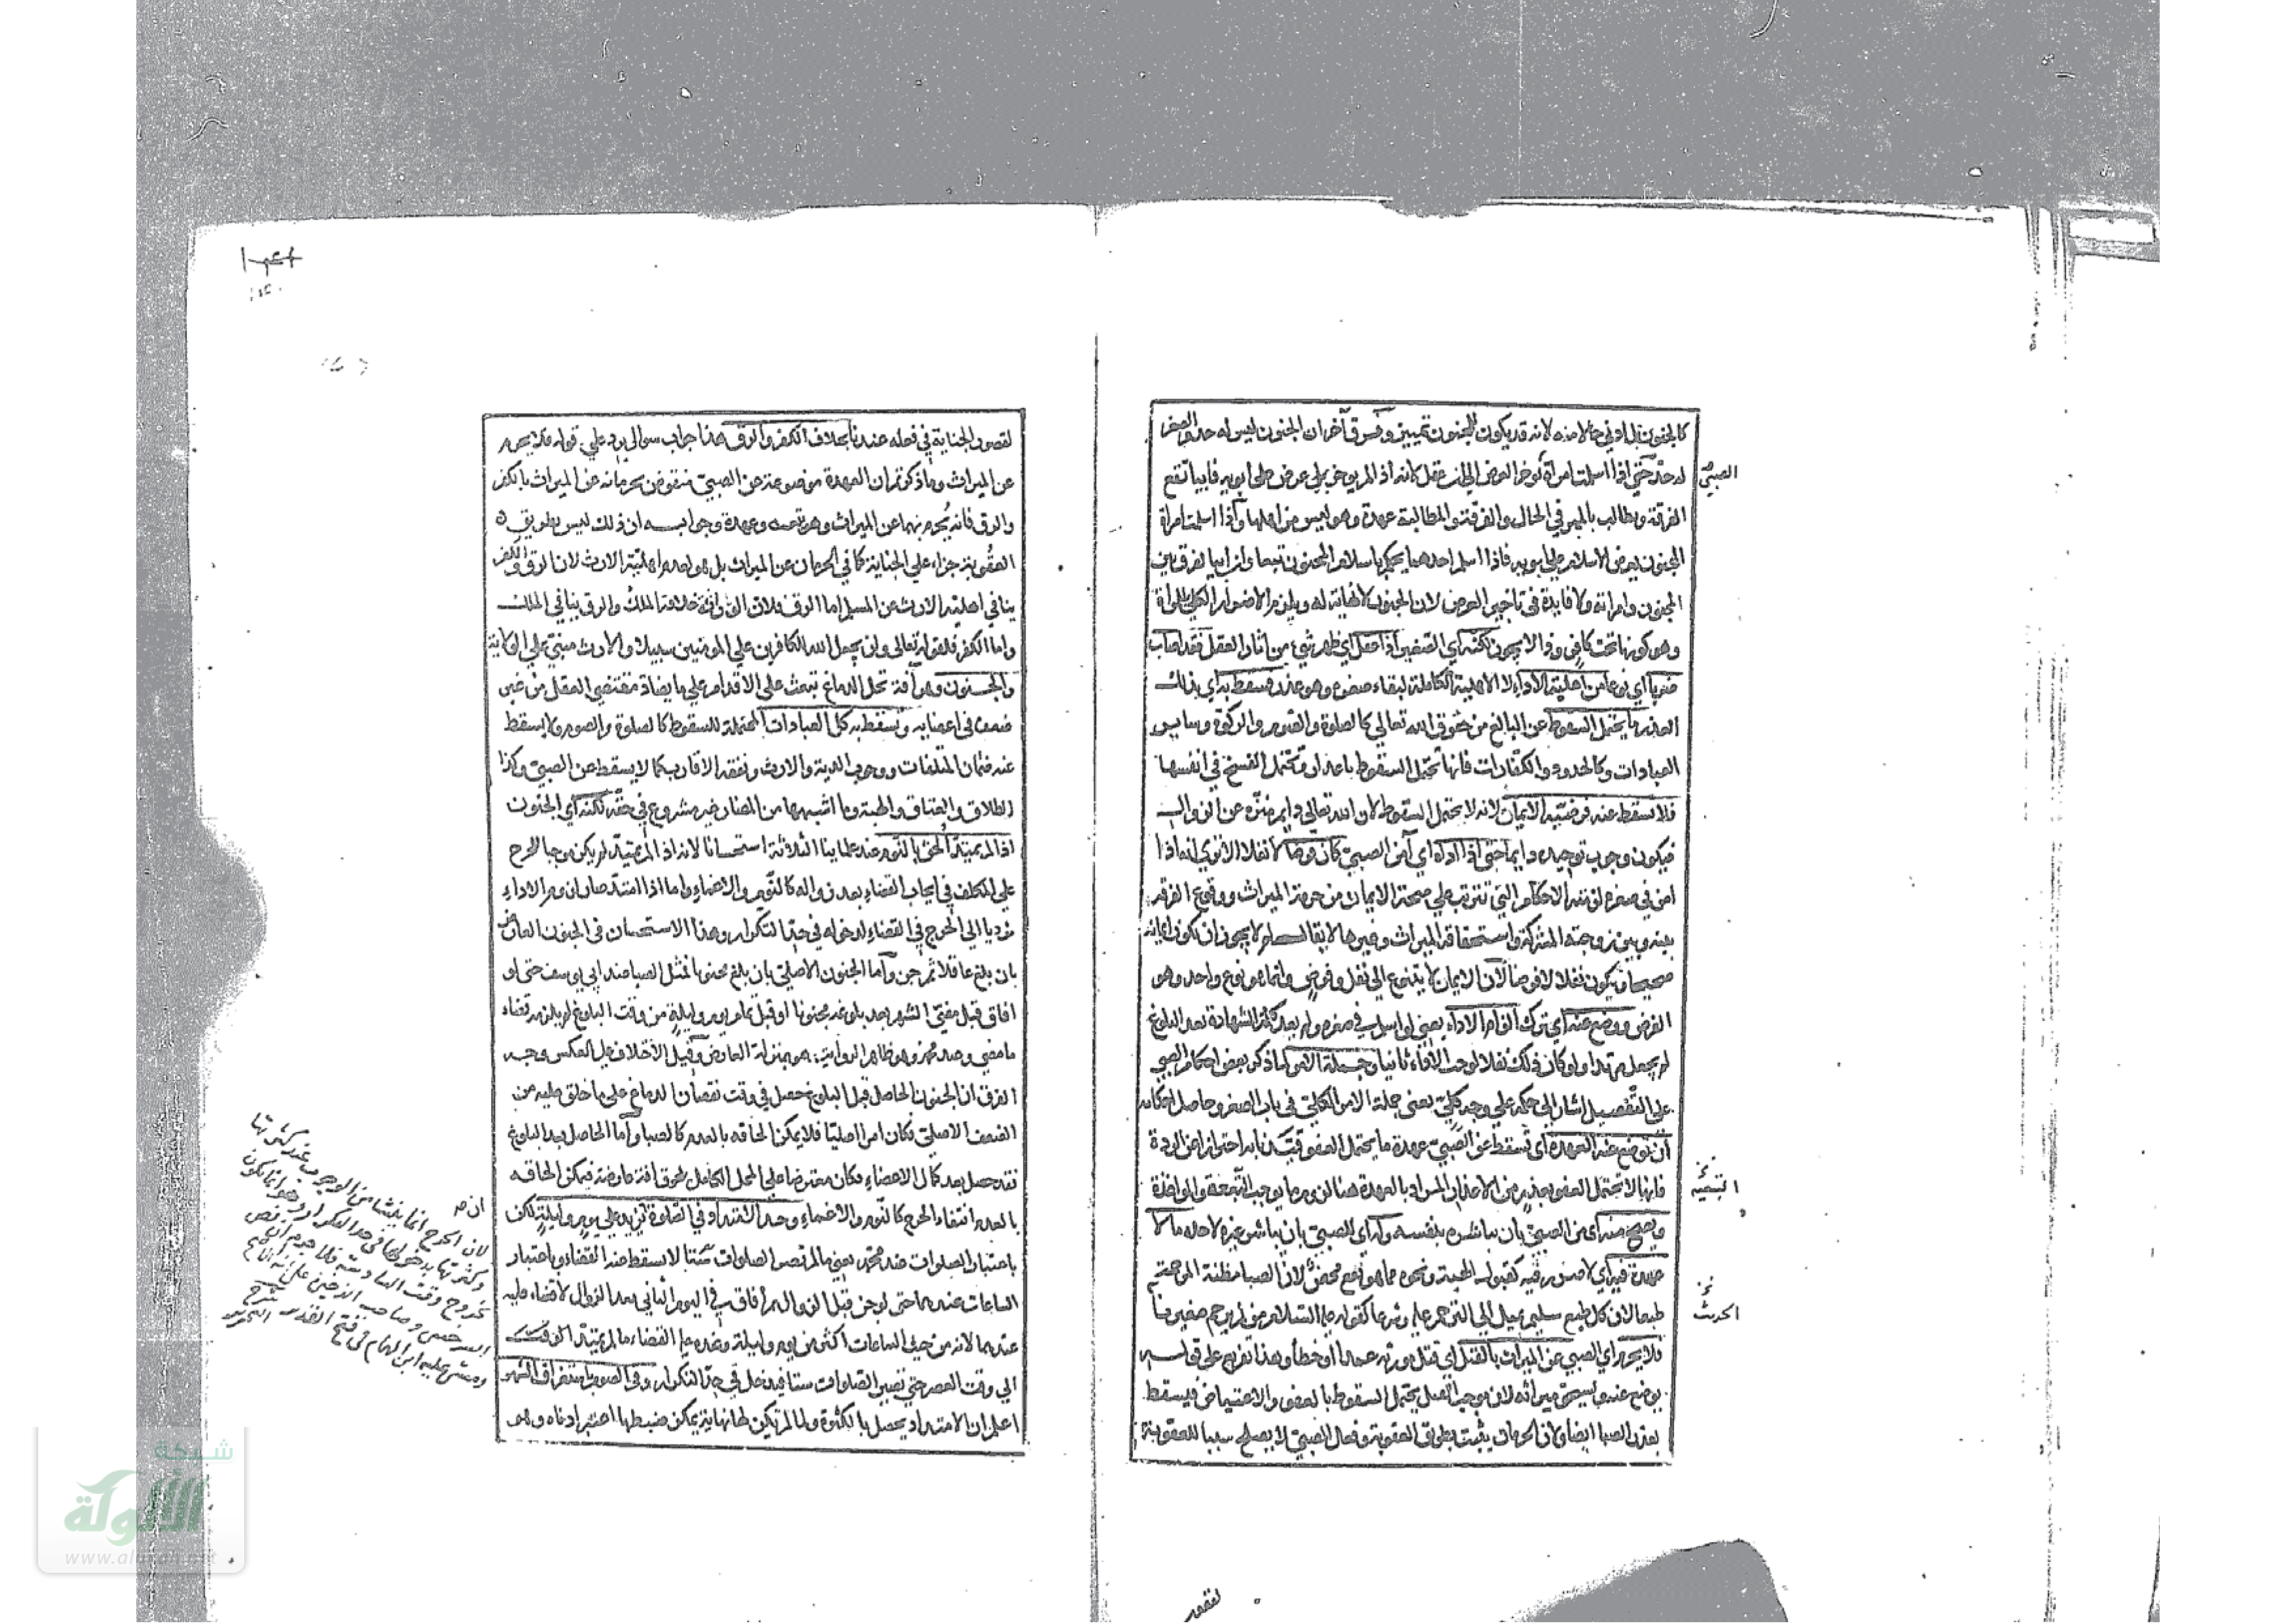 كالمجنون بل ادني حالا منه لانه قد يكون للمجنون تمييز وفرق آخر ان الجنون ليس له حد والصغر
له حد حتي اذا اسلمت امرأة يؤخر العرض الي ان عقل كانه اذ المريوخر بل عرض علي ابويه فابيا تقع
الصبي
الفرقة ويطالب بالمهر في الحال والفرقة والمطالبة عهدة وهو ليس من اهلها واذا اسلمت امرأة
المجنون يعرض الاسلام علي ابويه فاذا اسلم احدهما يحكم باسلام المجنون تبعا وان ابيا يفرق بين
المجنون وامراته ولا فايدة في تاخير العرض لان الجنون لا نهاية له ويلزم الاضرار الكلي للمرأة
وهو كونها تحت كافر وذا لا يجوز لكنه اي الصغير اذا عقل اي ظهر شيء من اثار العقل فقد اصاب
ضربا اي نوعا من اهلية الاداء لا الاهلية الكاملة لبقاء صغره وهو عذر فسقط به اي بذلك
العذر ما يحتمل السقوط عن البالغ من حقوق الله تعالي كالصلوة والصوم والزكوة وساير
العبادات وكالحدود والكفارات فانها تحتمل السقوط باعذار وتحتمل الفسخ في انفسها
فلا تسقط عنه فرضية الايمان لانه لا يحتمل السقوط لان الله تعالي دايم منزه عن الزوال
فيكون وجوب توحيده دايما حتي اذا اداه اي آمن الصبي كان فرضا لا نفلا الا تري انه اذا
امن في صغره لزمته الاحكام التي تترتب علي صحة الايمان من حرمة الميراث ووقوع الفرقة
بينه وبين زوجته المشركة واستحقاقه الميراث وغيرها لا يقال لم لا يجوز ان يكون ايمانه
صحيحا ويكون نفلا لا فرضا لان الايمان لا يتنوع الي نفل وفرض وانما هو نوع واحد وهو
الفرض ووضع عنه اي ترك الزام الاداء يعني لو اسلم في صغره ولم يعد كلمة الشهادة بعد البلوغ
لم يجعل مرتدا ولو كان ذلك نفلا لوجب الاداء ثانيا وجملة الامر لما ذكر بعض احكام الصبي
علي التفصيل اشار الي حكمه علي وجه كلي يعني جملة الامر الكلي في باب الصغر وحاصل احكامه
ان توضع عنه العهدة اي تسقط عن الصبي عهدة ما يحتمل العفو قيدنا به احترازا عن الردة
فانها لا تحتمل العفو بعذر من الاعذار المراد بالعهدة هنا لزوم ما يوجب التبعة والمواخذة
ويصح منه اي من الصبي بان يباشره بنفسه وله اي للصبي بان يباشر غيره لاجله ما لا
عهدة فيه اي لا ضرر فيه كقبول الهبة ونحوه مما هو نفع محض لان الصبا مظنة المرحمة
الحديث
طبعا لان كل طبع سليم يميل الي الترحم عليه وشرعا كقوله عليه السلام من لم يرحم صغيرنا
فلا يحرم اي الصبي عن الميراث بالقتل اي قتل مورثه عمدا او خطأ وهذا تفريع علي قوله
يوضع عنه ويستحق ميراثه لان موجب القتل يحتمل السقوط بالعفو والاعتياض فيسقط
بعذر الصبا ايضا ولان الحرمان يثبت بطريق العقوبة وفعل الصبي لا يصلح سببا للعقوبة
لقصور
لقصور الجناية في فعله عندنا بخلاف الكفر والرق هذا جواب سوال يرد علي قوله فلا يحرم
عن الميراث وما ذكرتم ان العهدة موضوعة عن الصبي منقوض بحرمانه عن الميراث بالكفر
والرق فانه يحرم بهما عن الميراث وهو تبعة وعهدة وجوابه ان ذلك ليس بطريق
العقوبة جزاء علي الجناية كما في الحرمان عن الميراث بل هو لعدم اهلية الارث لان الرق والكفر
ينافي اهلية الارث عن المسلم اما الرق فلان الوراثة خلافة الملك والرق ينافي الملك
واما الكفر فلقوله تعالي ولن يجعل الله للكافرين علي المومنين سبيلا والارث مبني علي الولاية
والجنون وهو آفة تحل الدماغ تبعث علي الاقدام علي ما يضاد مقتضي العقل من غير
ضعف في اعضايه وتسقط به كل العبادات المحتملة للسقوط كالصلوة والصوم ولا يسقط
عنه ضمان المتلفات ووجوب الدية والارث ونفقة الاقارب كما لا يسقط عن الصبي وكذا
الطلاق والعتاق والهبة وما اشبهها من المضار غير مشروع في حقه لكنه اي الجنون
اذا لم يمتد ألحق بالنوم عند علمائنا الثلاثة استحسانا لانه اذا لم يمتد لم يكن موجبا للحرج
علي المكلف في ايجاب القضاء بعد زواله كالنوم والاغماء واما اذا امتد صار لزوم الاداء
موديا الي الحرج في القضاء لدخوله في حد التكرار وهذا الاستحسان في الجنون العارض
بان بلغ عاقلا ثم جن واما الجنون الاصلي بان بلغ مجنونا فمثل الصبا عند ابي يوسف حتي لو
افاق قبل مضي الشهر بعد بلوغه مجنونا او قبل تمام يوم وليلة من وقت البلوغ لم يلزمه قضاء
ما مضي وعند محمد وهو ظاهر الرواية هو بمنزلة العارض وقيل الاختلاف علي العكس وجه
الفرق ان الجنون الحاصل قبل البلوغ حصل في وقت نقصان الدماغ علي ما خلق عليه من
الضعف الاصلي فكان امرا اصليا فلا يمكن الحاقه بالعدم كالصبا واما الحاصل بعد البلوغ
فقد حصل بعد كمال الاعضاء فكان معترضا علي المحل الكامل بلحوق آفة عارضة فيمكن الحاقه
بالعدم انتفاء الحرج كالنوم والاغماء وحد الامتداد في الصلوة ان يزيد علي يوم وليلة لكن
باعتبار الصلوات عند محمد يعني ما لم تصر الصلوات ستا لا يسقط عنه القضاء وباعتبار
الساعات عندهما حتي لو جن قبل الزوال ثم افاق في اليوم الثاني بعد الزوال لا قضاء عليه
عندهما لانه من حيث الساعات اكثر من يوم وليلة وعنده عليه القضاء ما لم يمتد الوقت
الي وقت العصر حتي تصير الصلوات ستا فيدخل في حد التكرار وفي الصوم باستغراق الشهر
اعلم ان الامتداد يحصل بالكثرة ولما لم تكن لها نهاية يمكن ضبطها اعتبر ادناه وهو
لان الحرج انما ينشا من الوجوب عند كثرتها
وكثرتها بدخولها في حد التكرار وهو انما يكون
بخروج وقت السادسة
السرخسي وصاحب
ومشي عليه ابن الهمام في فتح القدير
شبكة
الألوكة
www.alukah.net